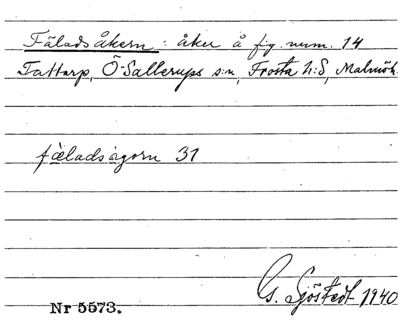 Fäladsåkern: åker å fig. num. 14
Tattarp, Ö. Sallerups s:n, Frosta h:d, Malmöh.
fäladsågorn 31
G. Sjöstedt 1940
Nr 5573.